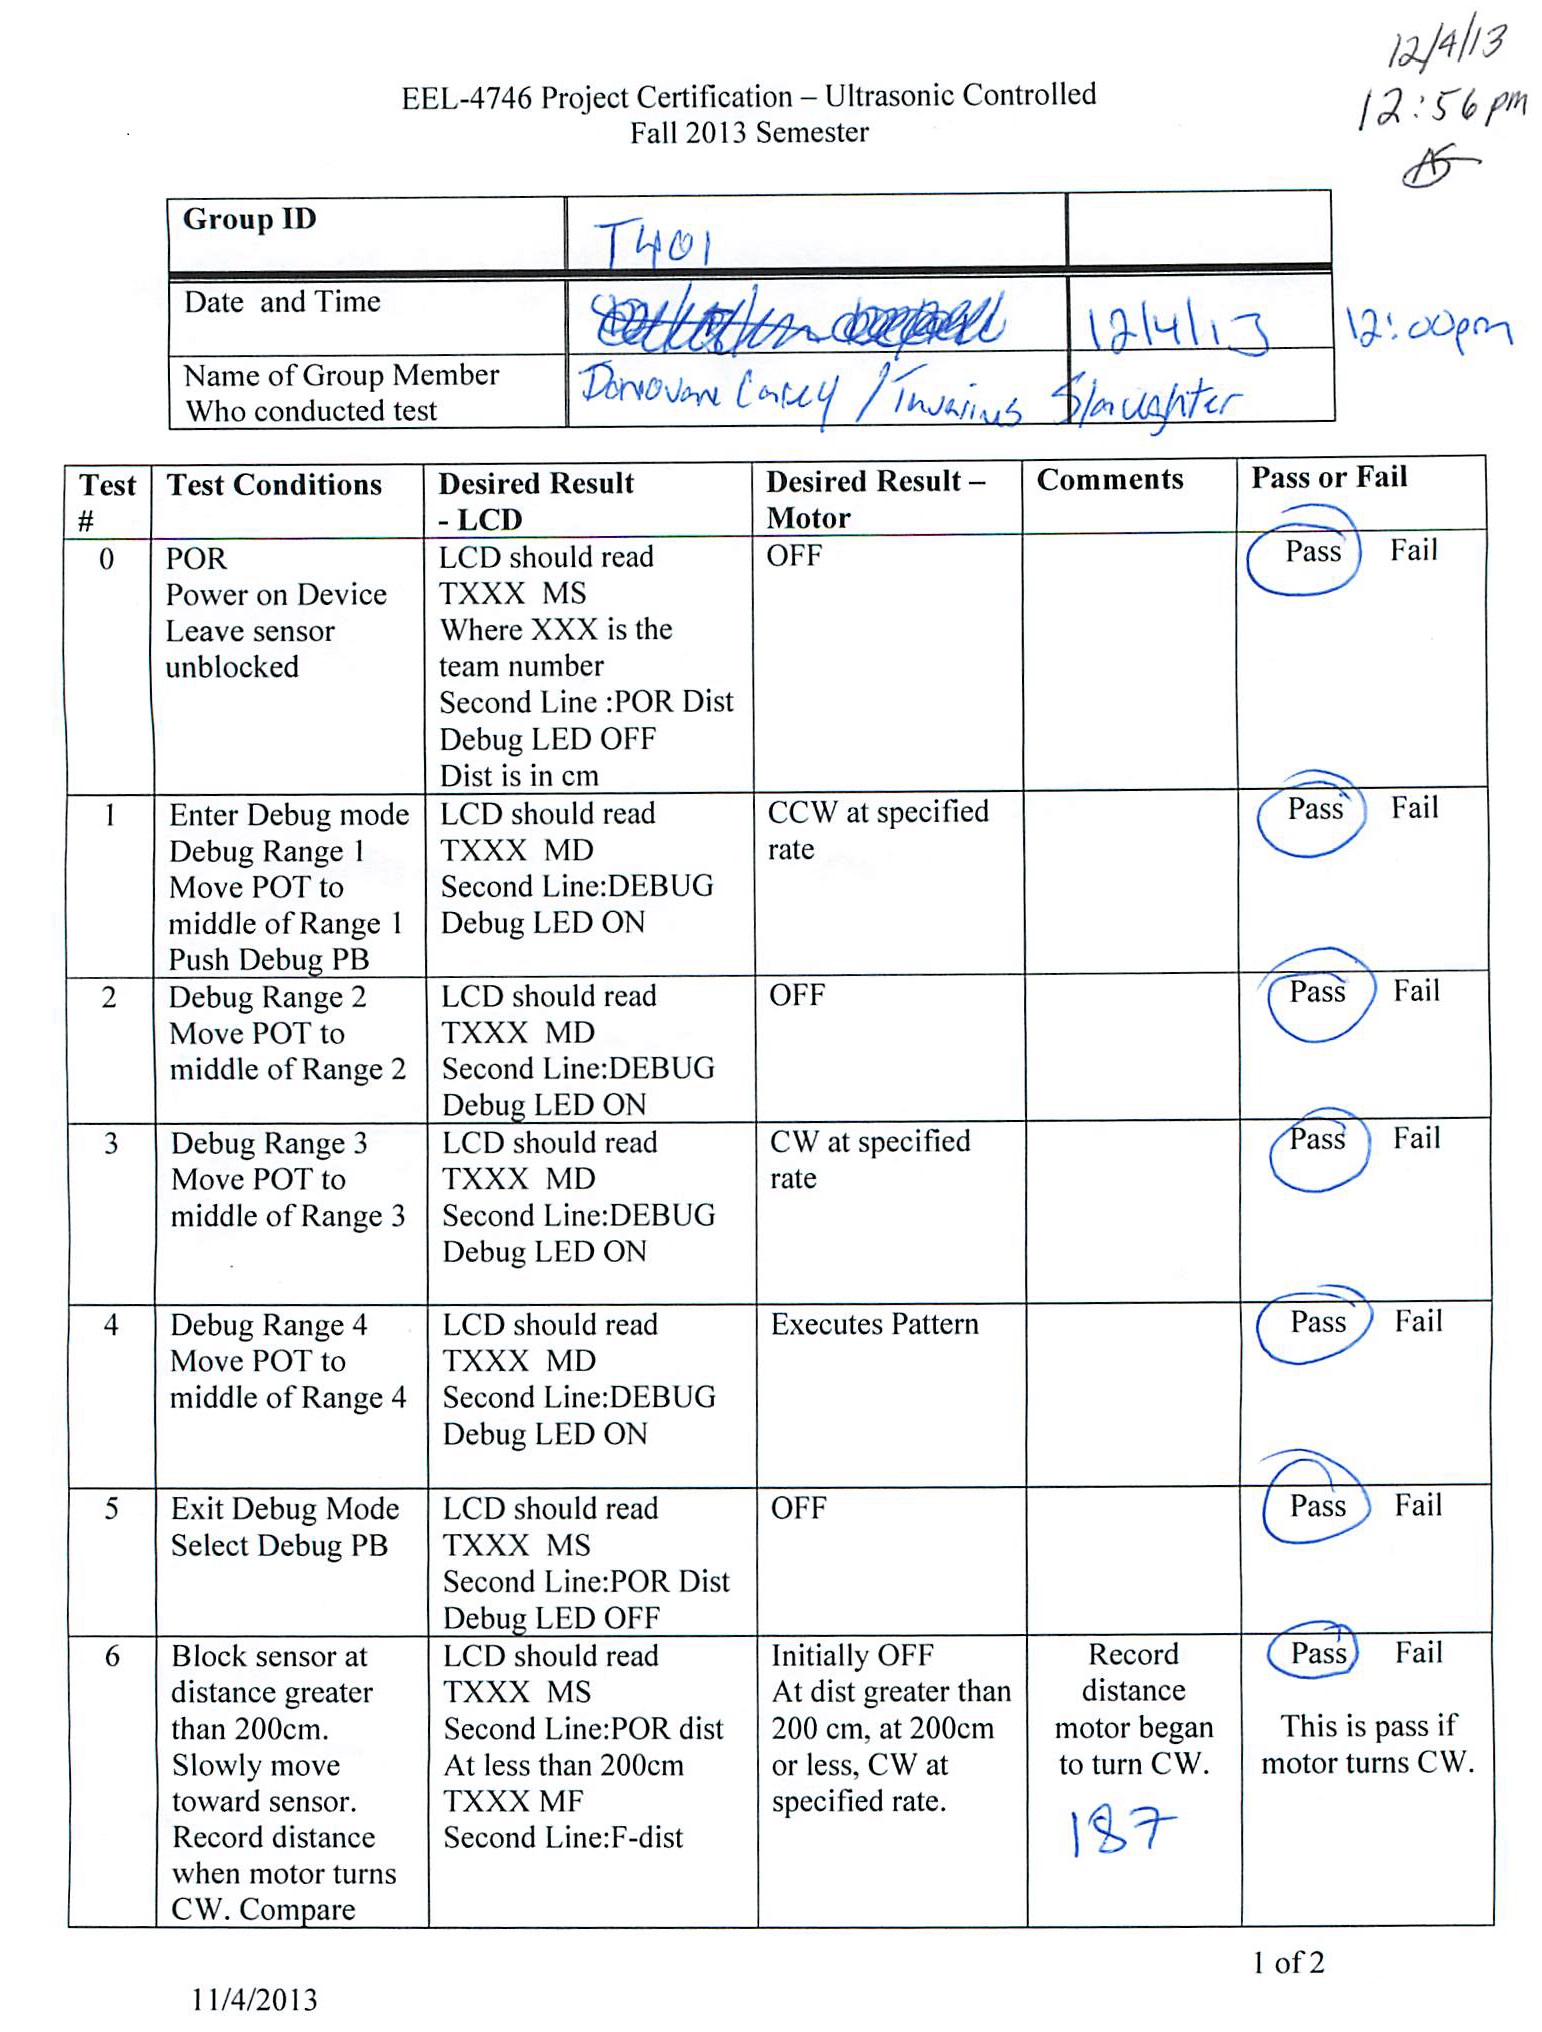 12/4/13
12:56pm
EEL-4746 Project Certification – Ultrasonic Controlled
Fall 2013 Semester
Group ID
T401
Date and Time
12/4/13
12:00pm
Name of Group Member
Who conducted test
Donovan / Slaughter
Test
#
Test Conditions
Desired Result
- LCD
Desired Result –
Motor
Comments
Pass or Fail
0
POR
Power on Device
Leave sensor
unblocked
LCD should read
TXXX MS
Where XXX is the
team number
Second Line :POR Dist
Debug LED OFF
Dist is in cm
OFF
Pass Fail
1
Enter Debug mode
Debug Range 1
Move POT to
middle of Range 1
Push Debug PB
LCD should read
TXXX MD
Second Line:DEBUG
Debug LED ON
CCW at specified
rate
Pass Fail
2
Debug Range 2
Move POT to
middle of Range 2
LCD should read
TXXX MD
Second Line:DEBUG
Debug LED ON
OFF
Pass Fail
3
Debug Range 3
Move POT to
middle of Range 3
LCD should read
TXXX MD
Second Line:DEBUG
Debug LED ON
CW at specified
rate
Pass Fail
4
Debug Range 4
Move POT to
middle of Range 4
LCD should read
TXXX MD
Second Line:DEBUG
Debug LED ON
Executes Pattern
Pass Fail
5
Exit Debug Mode
Select Debug PB
LCD should read
TXXX MS
Second Line:POR Dist
Debug LED OFF
OFF
Pass Fail
6
Block sensor at
distance greater
than 200cm.
Slowly move
toward sensor.
Record distance
when motor turns
CW. Compare
LCD should read
TXXX MS
Second Line:POR dist
At less than 200cm
TXXX MF
Second Line:F-dist
Initially OFF
At dist greater than
200 cm, at 200cm
or less, CW at
specified rate.
Record
distance
motor began
to turn CW.
187
Pass Fail
This is pass if
motor turns CW.
1 of 2
11/4/2013